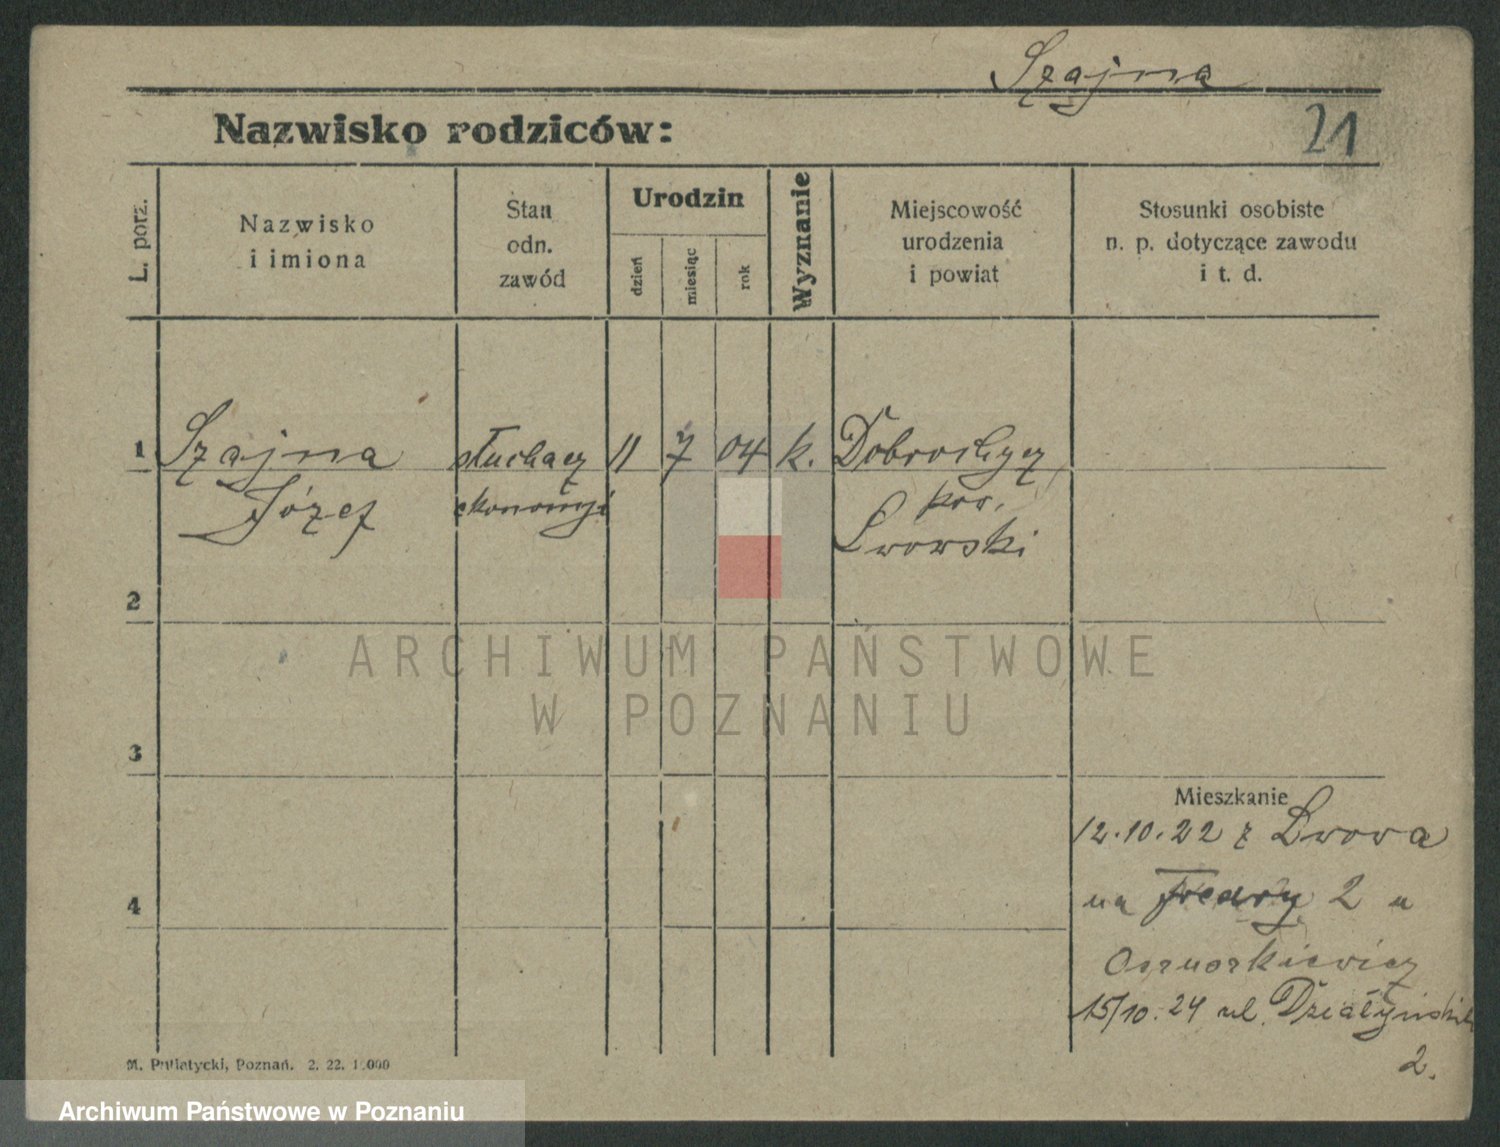 Szajna
Nazwisko rodziców:
21
L. porz.
Nazwisko
i imiona
Stan
odn.
zawód
Urodzin
dzień
miesiąc
rok
Wyznanie
Miejscowość
urodzenia
i powiat
Stosunki osobiste
n. p. dotyczące zawodu
i t. d.
1 Szajna słuchacz 11 7 04 k.
Józef ekonomji pow.
Lwowski
2
3
4
Mieszkanie
12.10.22 z Lwowa
na Fredry 2 u
15/10.24 ul. Działyńskich
2.
M. Putiatycki, Poznań. 2. 22. 1000
ARCHIWUM PAŃSTWOWE
W POZNANIU
Archiwum Państwowe w Poznaniu